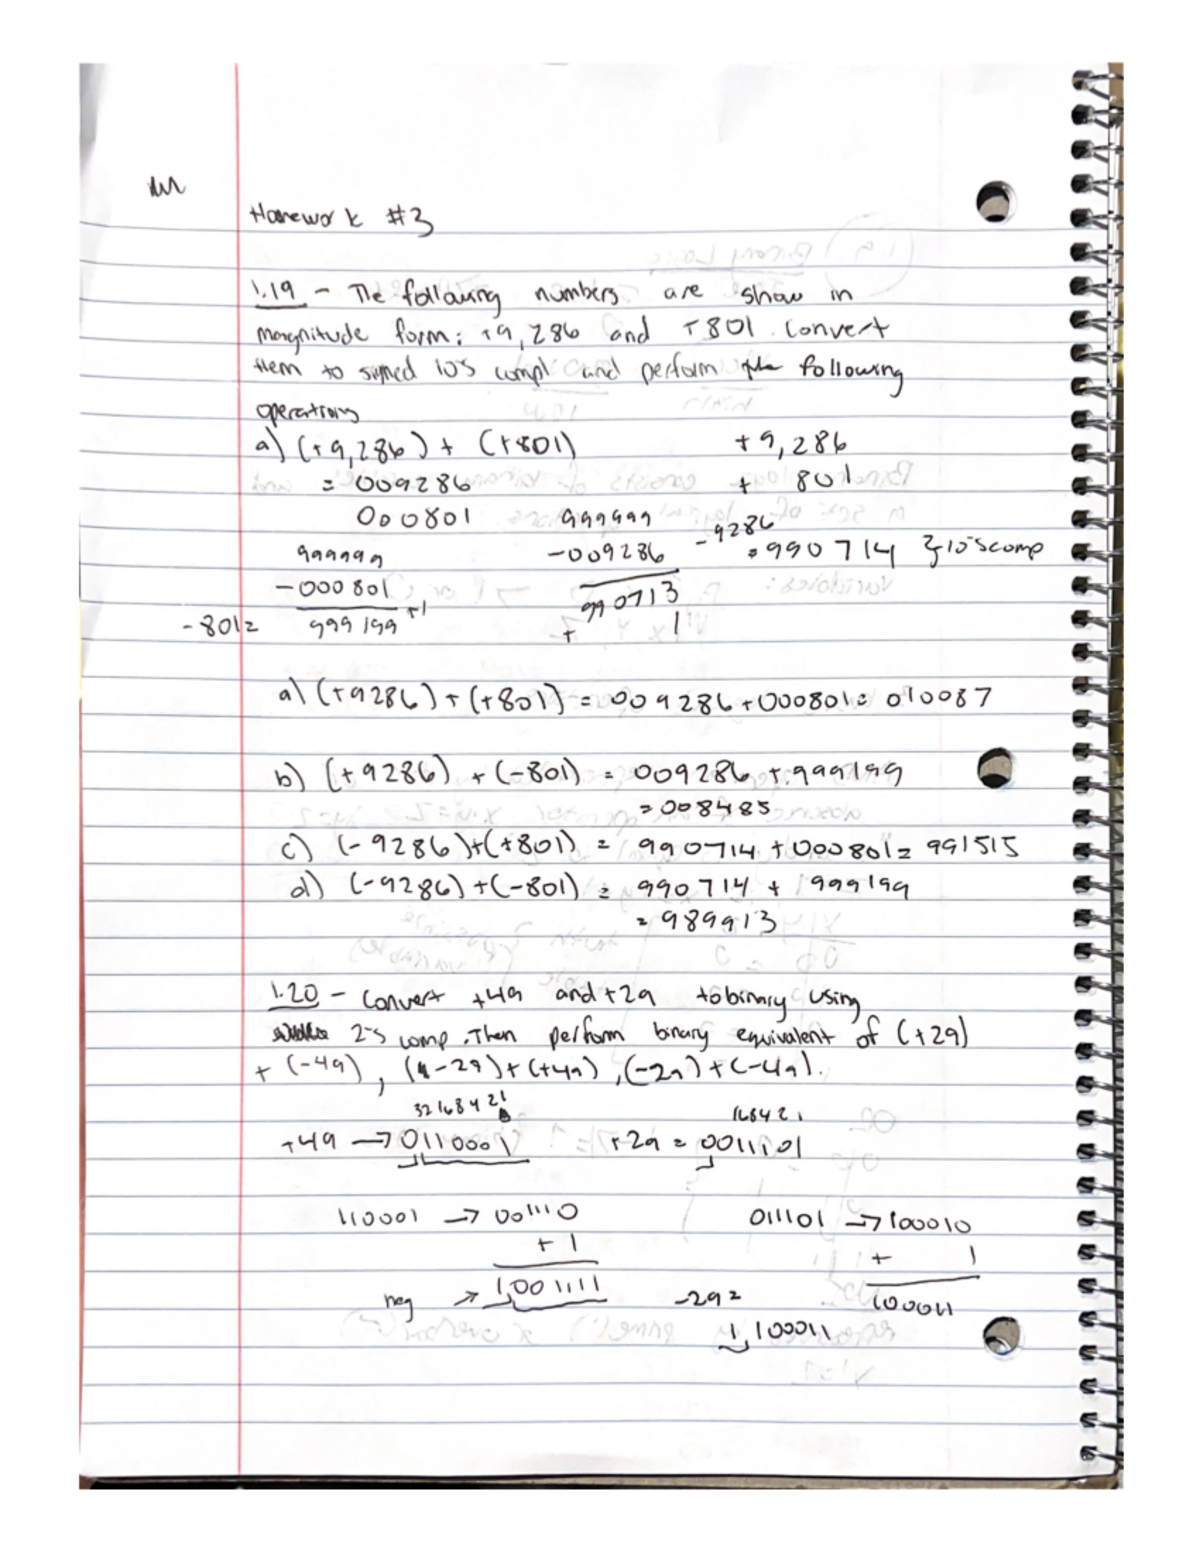 Homework #3
1.19 - The following numbers are show in
magnitude form: +9,286 and +801. Convert
them to signed 10's compl and perform the following
operations
a) (+9,286) + (+801) +9,286
= 009286 + 801
000801 999999 -9286
999999 -009286 = 990714 } 10's comp
-000801 990713
-801= 999199 +1 + 1
a) (+9286) + (+801) = 009286+000801= 010087
b) (+9286) + (-801) = 009286 + 999199
= 008485
c) (-9286)+(+801) = 990714 +000801= 991515
d) (-9286) +(-801) = 990714 + 999199
= 989913
1.20 - Convert +49 and +29 to binary using
2-s comp. Then perform binary equivalent of (+29)
+ (-49), (-29)+(+49), (-29)+(-49).
32 16 8 4 2 1 16 8 4 2 1
+49 → 0110001 +29 = 0011101
110001 → 001110 011101 → 100010
+ 1 + 1
neg → 1,001111 -29= 100011
1,100011